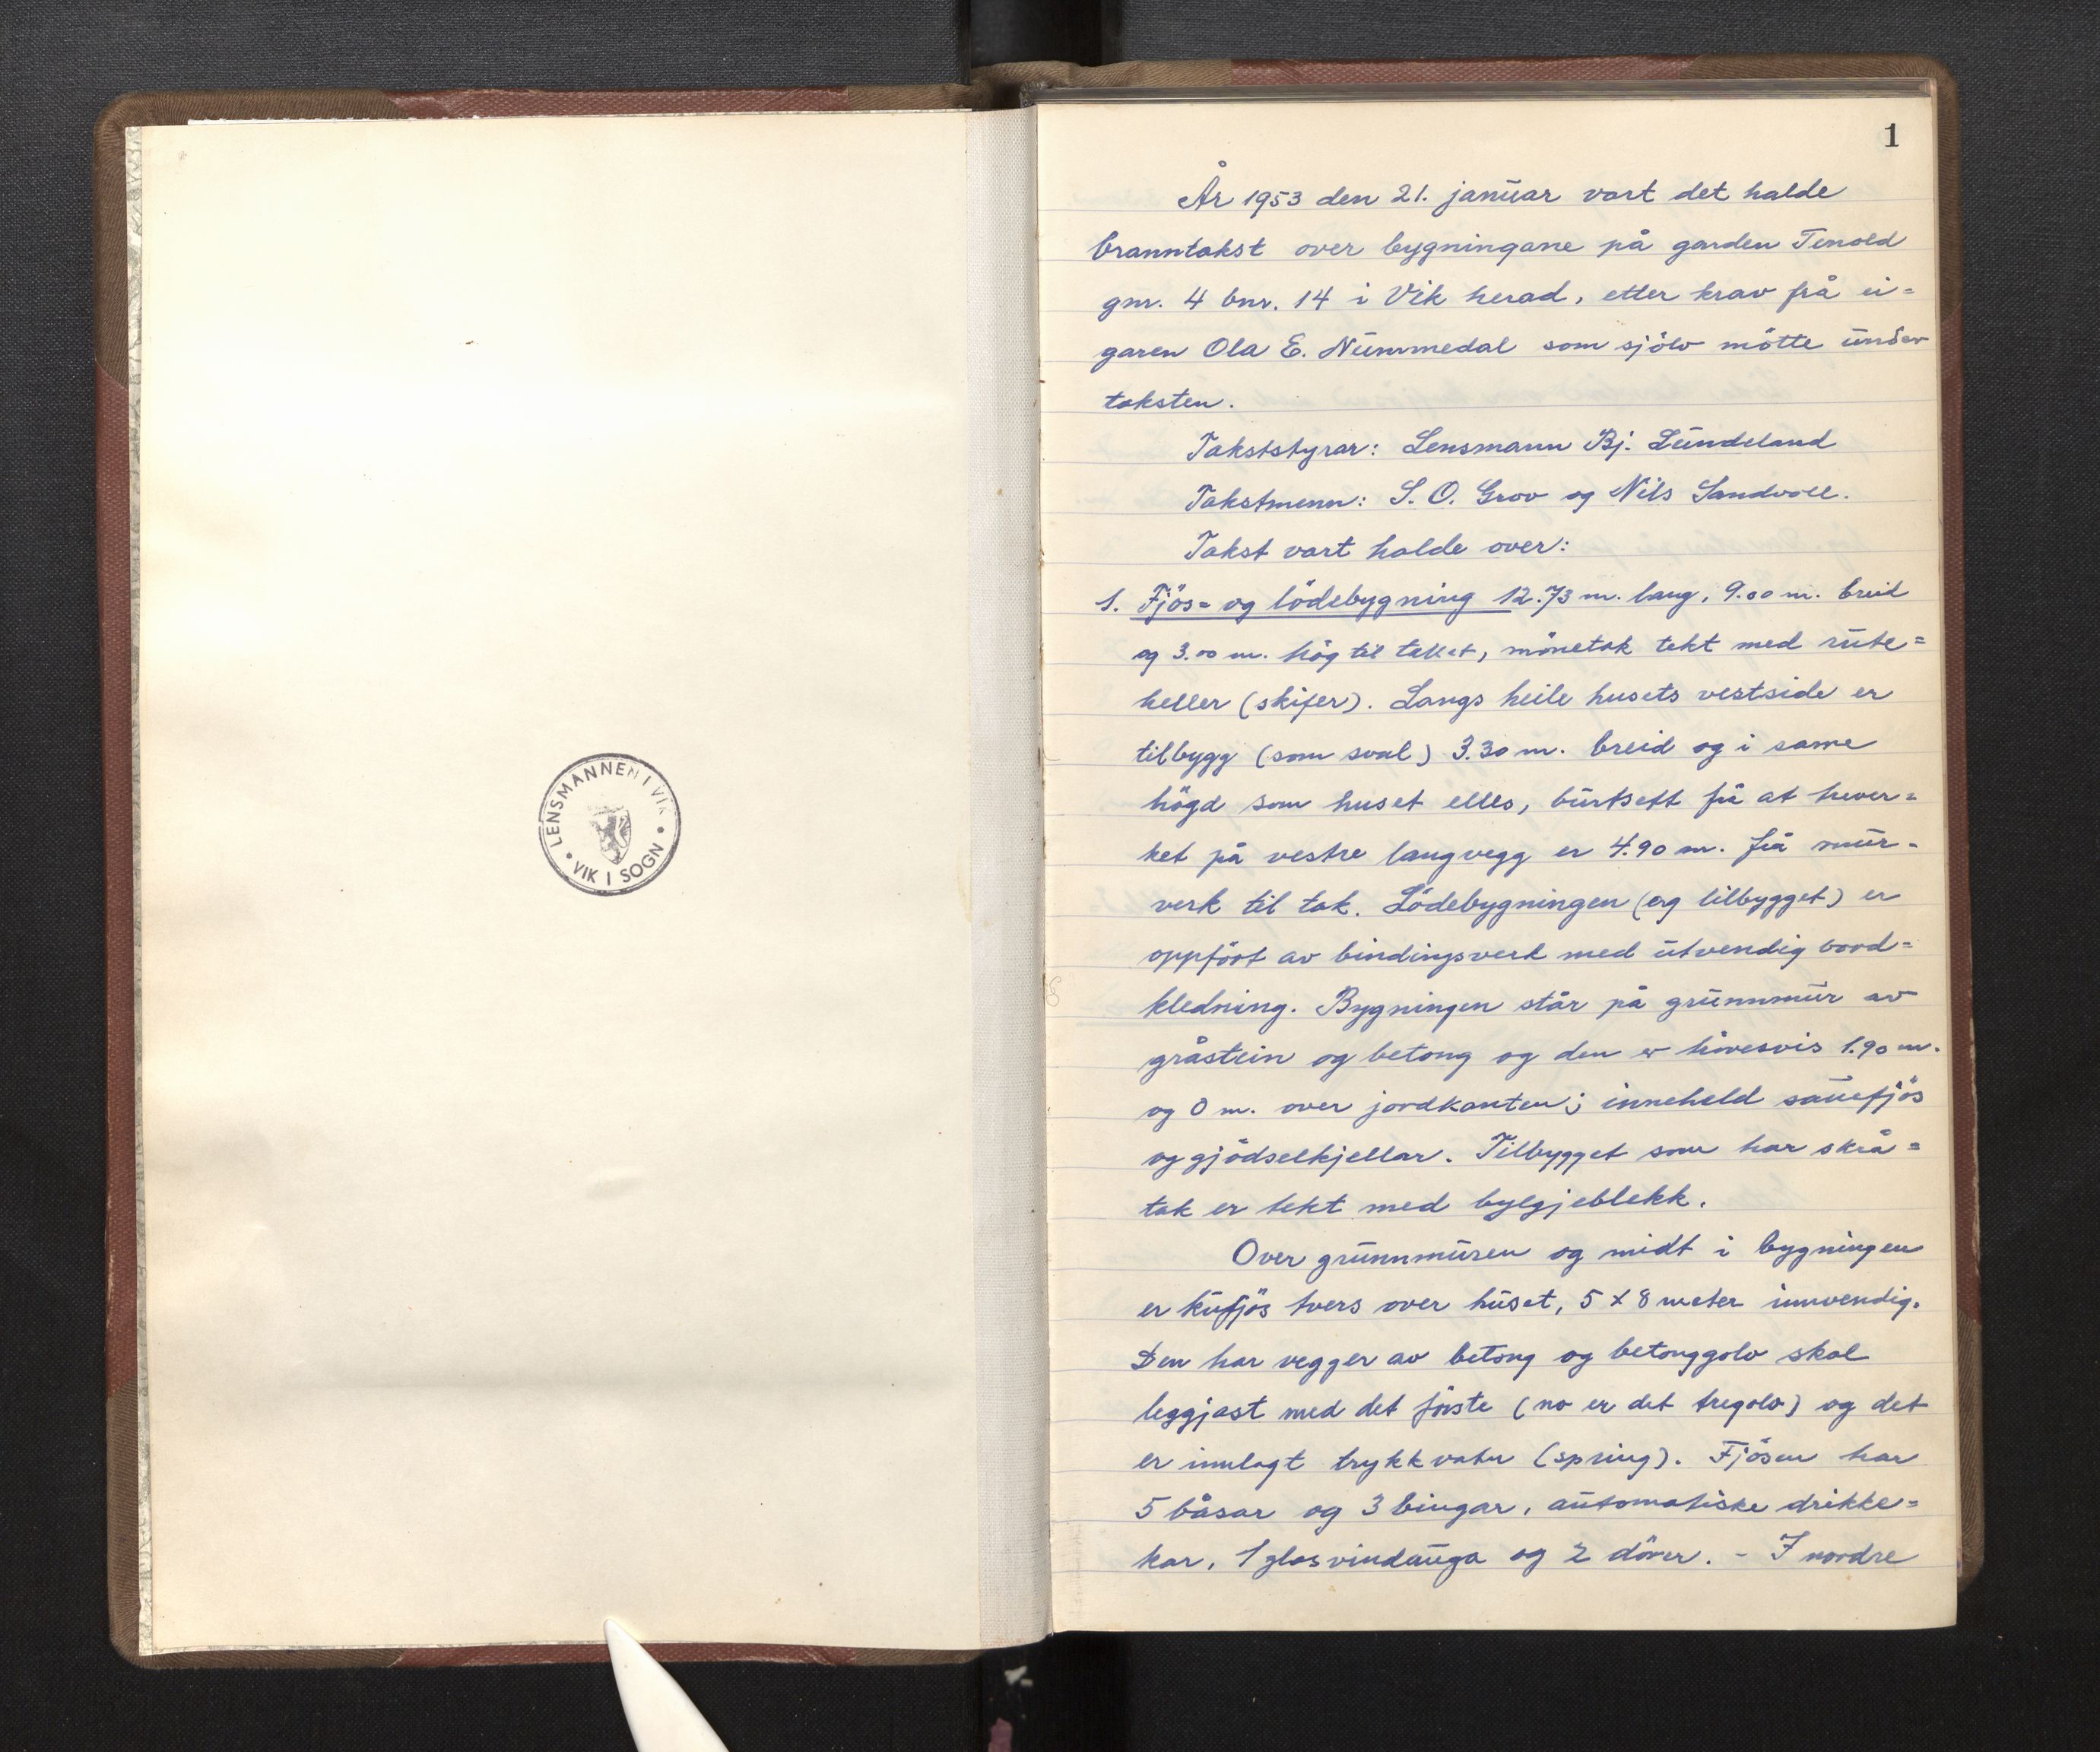 LENSMANNEN I VIK
• VIK I SOGN •
1
År 1953 den 21. januar vart det halde
branntakst over bygningane på garden Tenold
gnr. 4 bnr. 14 i Vik herad, etter krav frå ei=
garen Ola E. Nummedal som sjölv mötte under
taksten.
Takststyrar: Lensmann Bj. Lundeland
Takstmenn: S. O. Grov og Nils Sandvoll.
Takst vart halde over:
1. Fjös= og lödebygning 12.73 m. lang, 9.00 m. breid
og 3.00 m. hög til taket, mönetak tekt med rute=
heller (skifer). Langs heile husets vestside er
tilbygg (som sval) 3.30 m. breid og i same
högd som huset elles, burtsett frå at hever=
ket på vestre langvegg er 4.90 m. frå mur-
verk til tak. Lödebygningen (og tilbygget) er
oppfört av bindingsverk med utvendig bord=
kledning. Bygningen står på grunnmur av
gråstein og betong og den er hövesvis 1.90 m.
og 0 m. over jordkanten; inneheld sauefjös
og gjödselkjellar. Tilbygget som har skrå=
tak er tekt med bylgjeblekk.
Over grunnmuren og midt i bygningen
er kufjös tvers over huset, 5 x 8 meter innvendig.
Den har vegger av betong og betonggolv skal
leggjast med det förste (no er det tregolv) og det
er innlagt trykkvatn (spring). Fjösen har
5 båsar og 3 bingar, automatiske drikke=
kar, 1 glasvindauga og 2 dörer. - I nordre